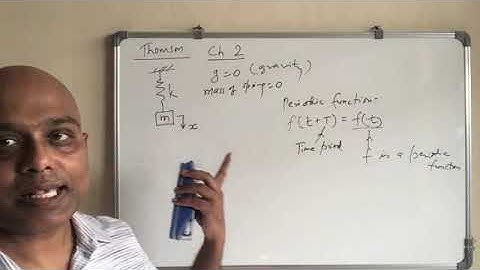 Thomson Ch 2
g=0 (gravity)
k
mass of spring=0
m
x
Periodic function-
f(t+T) = f(t)
Time period
f is a periodic
function